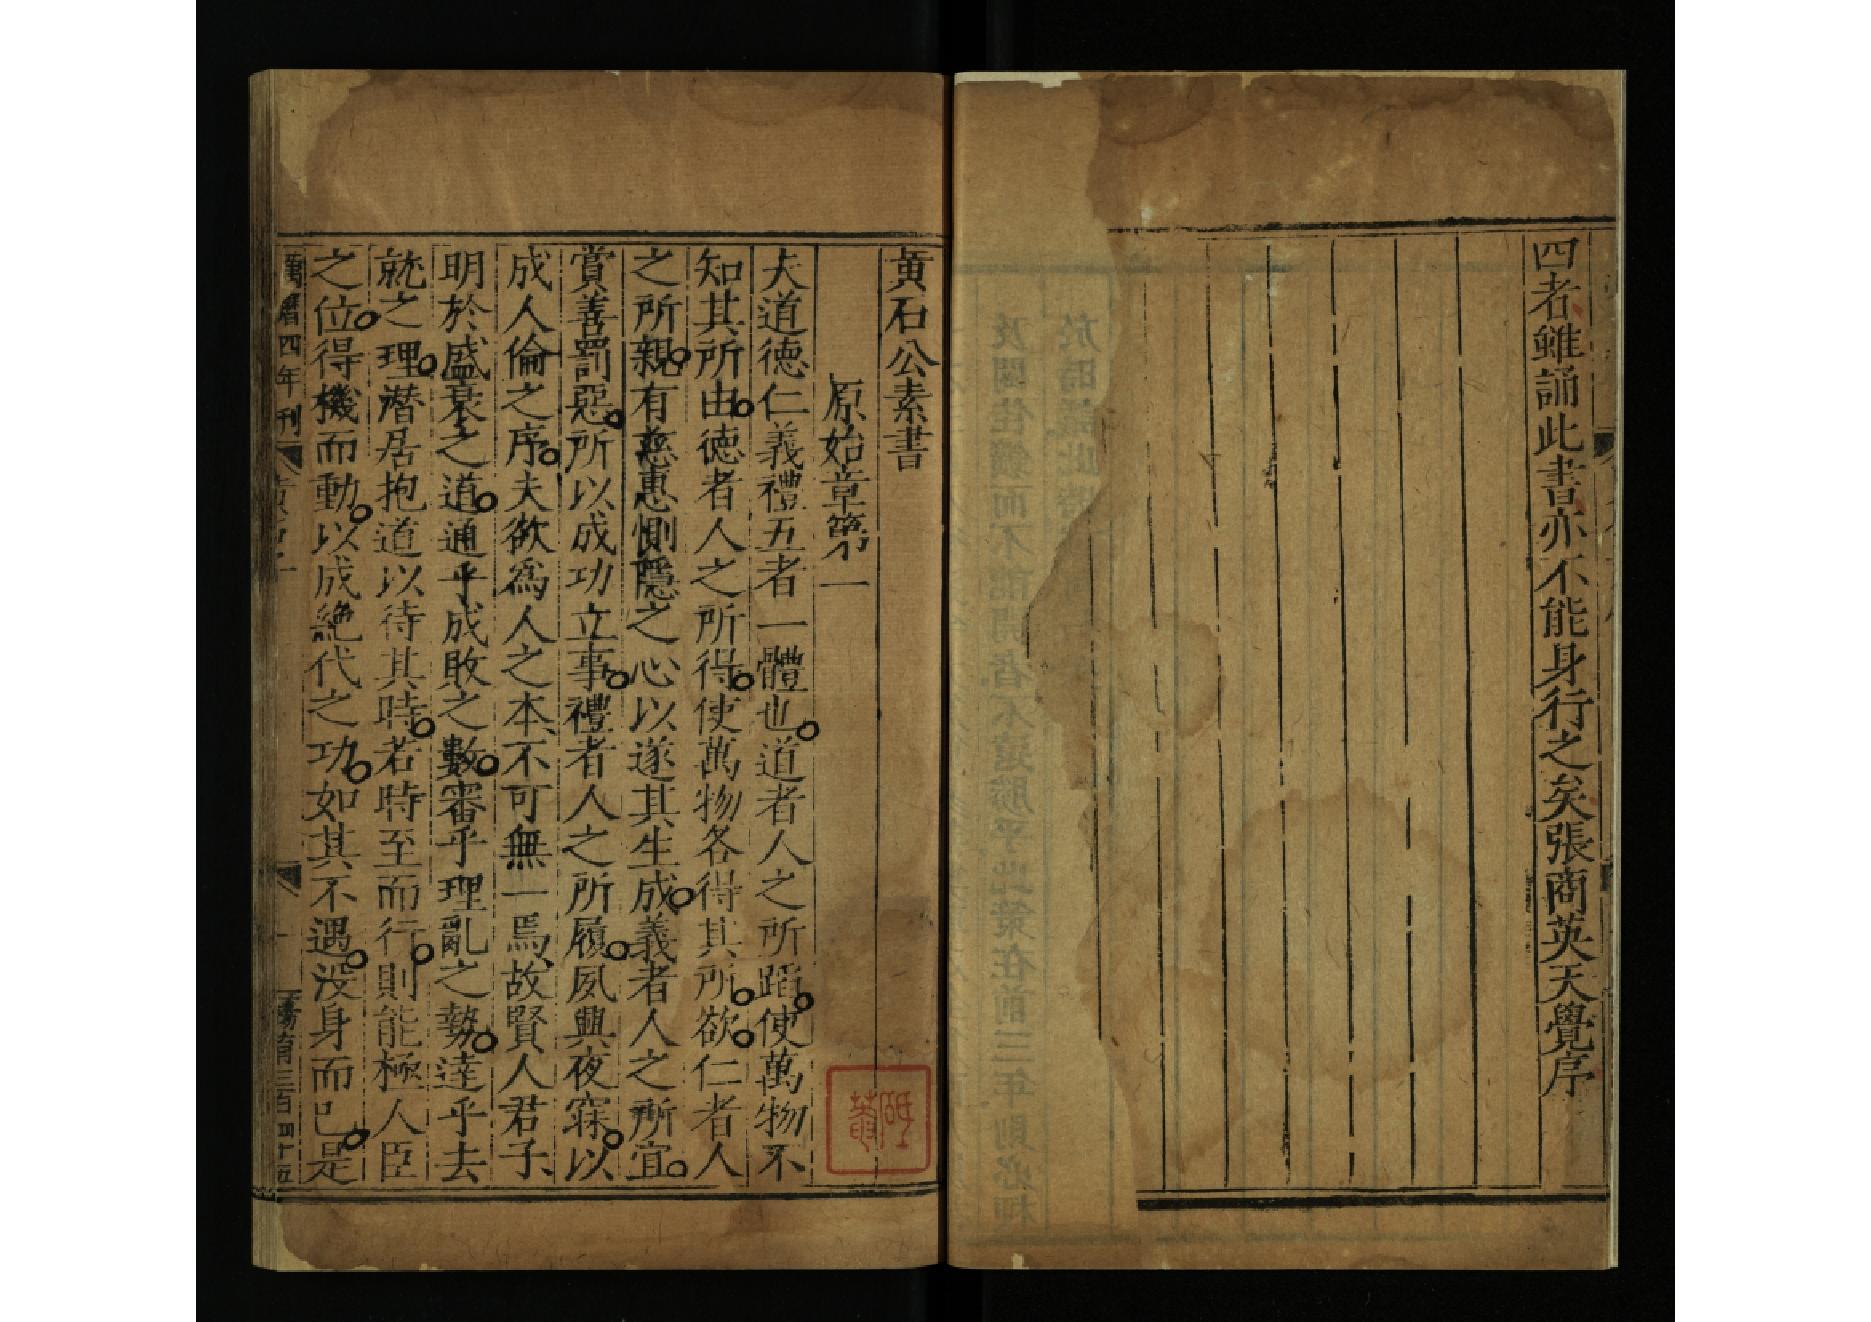 四者雖誦此書亦不能身行之矣張商英天覺序
黃石公素書
原始章第一
夫道德仁義禮五者一體也道者人之所蹈使萬物不
知其所由德者人之所得使萬物各得其所欲仁者人
之所親有慈惠惻隱之心以遂其生成義者人之所宜
賞善罰惡所以成功立事禮者人之所履夙興夜寐以
成人倫之序夫欲爲人之本不可無一焉故賢人君子
明於盛衰之道通乎成敗之數審乎理亂之勢達乎去
就之理潛居抱道以待其時若時至而行則能極人臣
之位得機而動以成絶代之功如其不遇没身而已是
萬曆四年刊
三百四十五